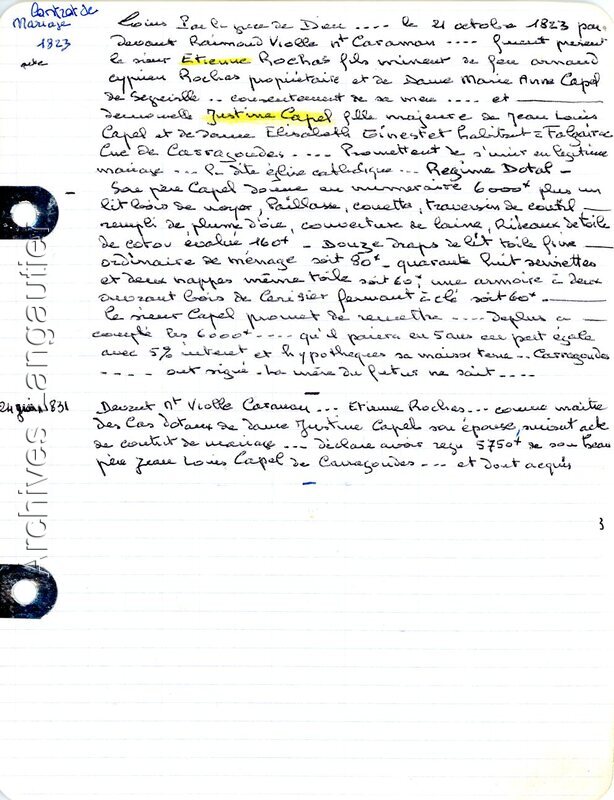 Contrat de
Mariage
1823
acte
Louis Par la grace de Dieu .... le 21 octobre 1823 par
devant Raimond Violle nt Caraman .... furent présent
le sieur Etienne Rochas fils mineur de feu arnaud
cyprien Rochas propriétaire et de Dame Marie Anne Capel
de Segreville .. consentement de sa mère .... et
demoiselle Justine Capel fille majeure de Jean Louis
Capel et de dame Elisabeth Ginestet habitant =
Cne de Carragoudes .... Promettent de s'unir en légitime
mariage ... la dite église catholique ... Regime Dotal -
- Son père Capel donne en numeraire 6000+ plus un
lit bois de noyer, Paillasse, couette, traversin de coutil
rempli de plume d'oie, couverture de laine, Rideaux de toile
de coton évalué 160+ - Douze draps de lit toile fine
ordinaire de ménage soit 80+ - quarante huit serviettes
et deux nappes même toile soit 60+, une armoire à deux
ouvrant bois de Cerisier fermant à clé soit 60+
le sieur Capel promet de remettre .... de plus a
compté les 6000+ .... qu'il paiera en 5 ans en part égale
avec 5% interet et hypothèques sa maison terre .. Carragoudes
.... ont signé - La mère du futur ne sait ....
1831
Devant Nt Violle Caraman ... Etienne Rochas ... comme maitre
des Cas dotaux de dame Justine Capel son épouse, suivant acte
de contrat de mariage ... déclare avoir reçu 5750+ de son beau
père Jean Louis Capel de Carragoudes ... et dont acquis
3
Archives Langautier